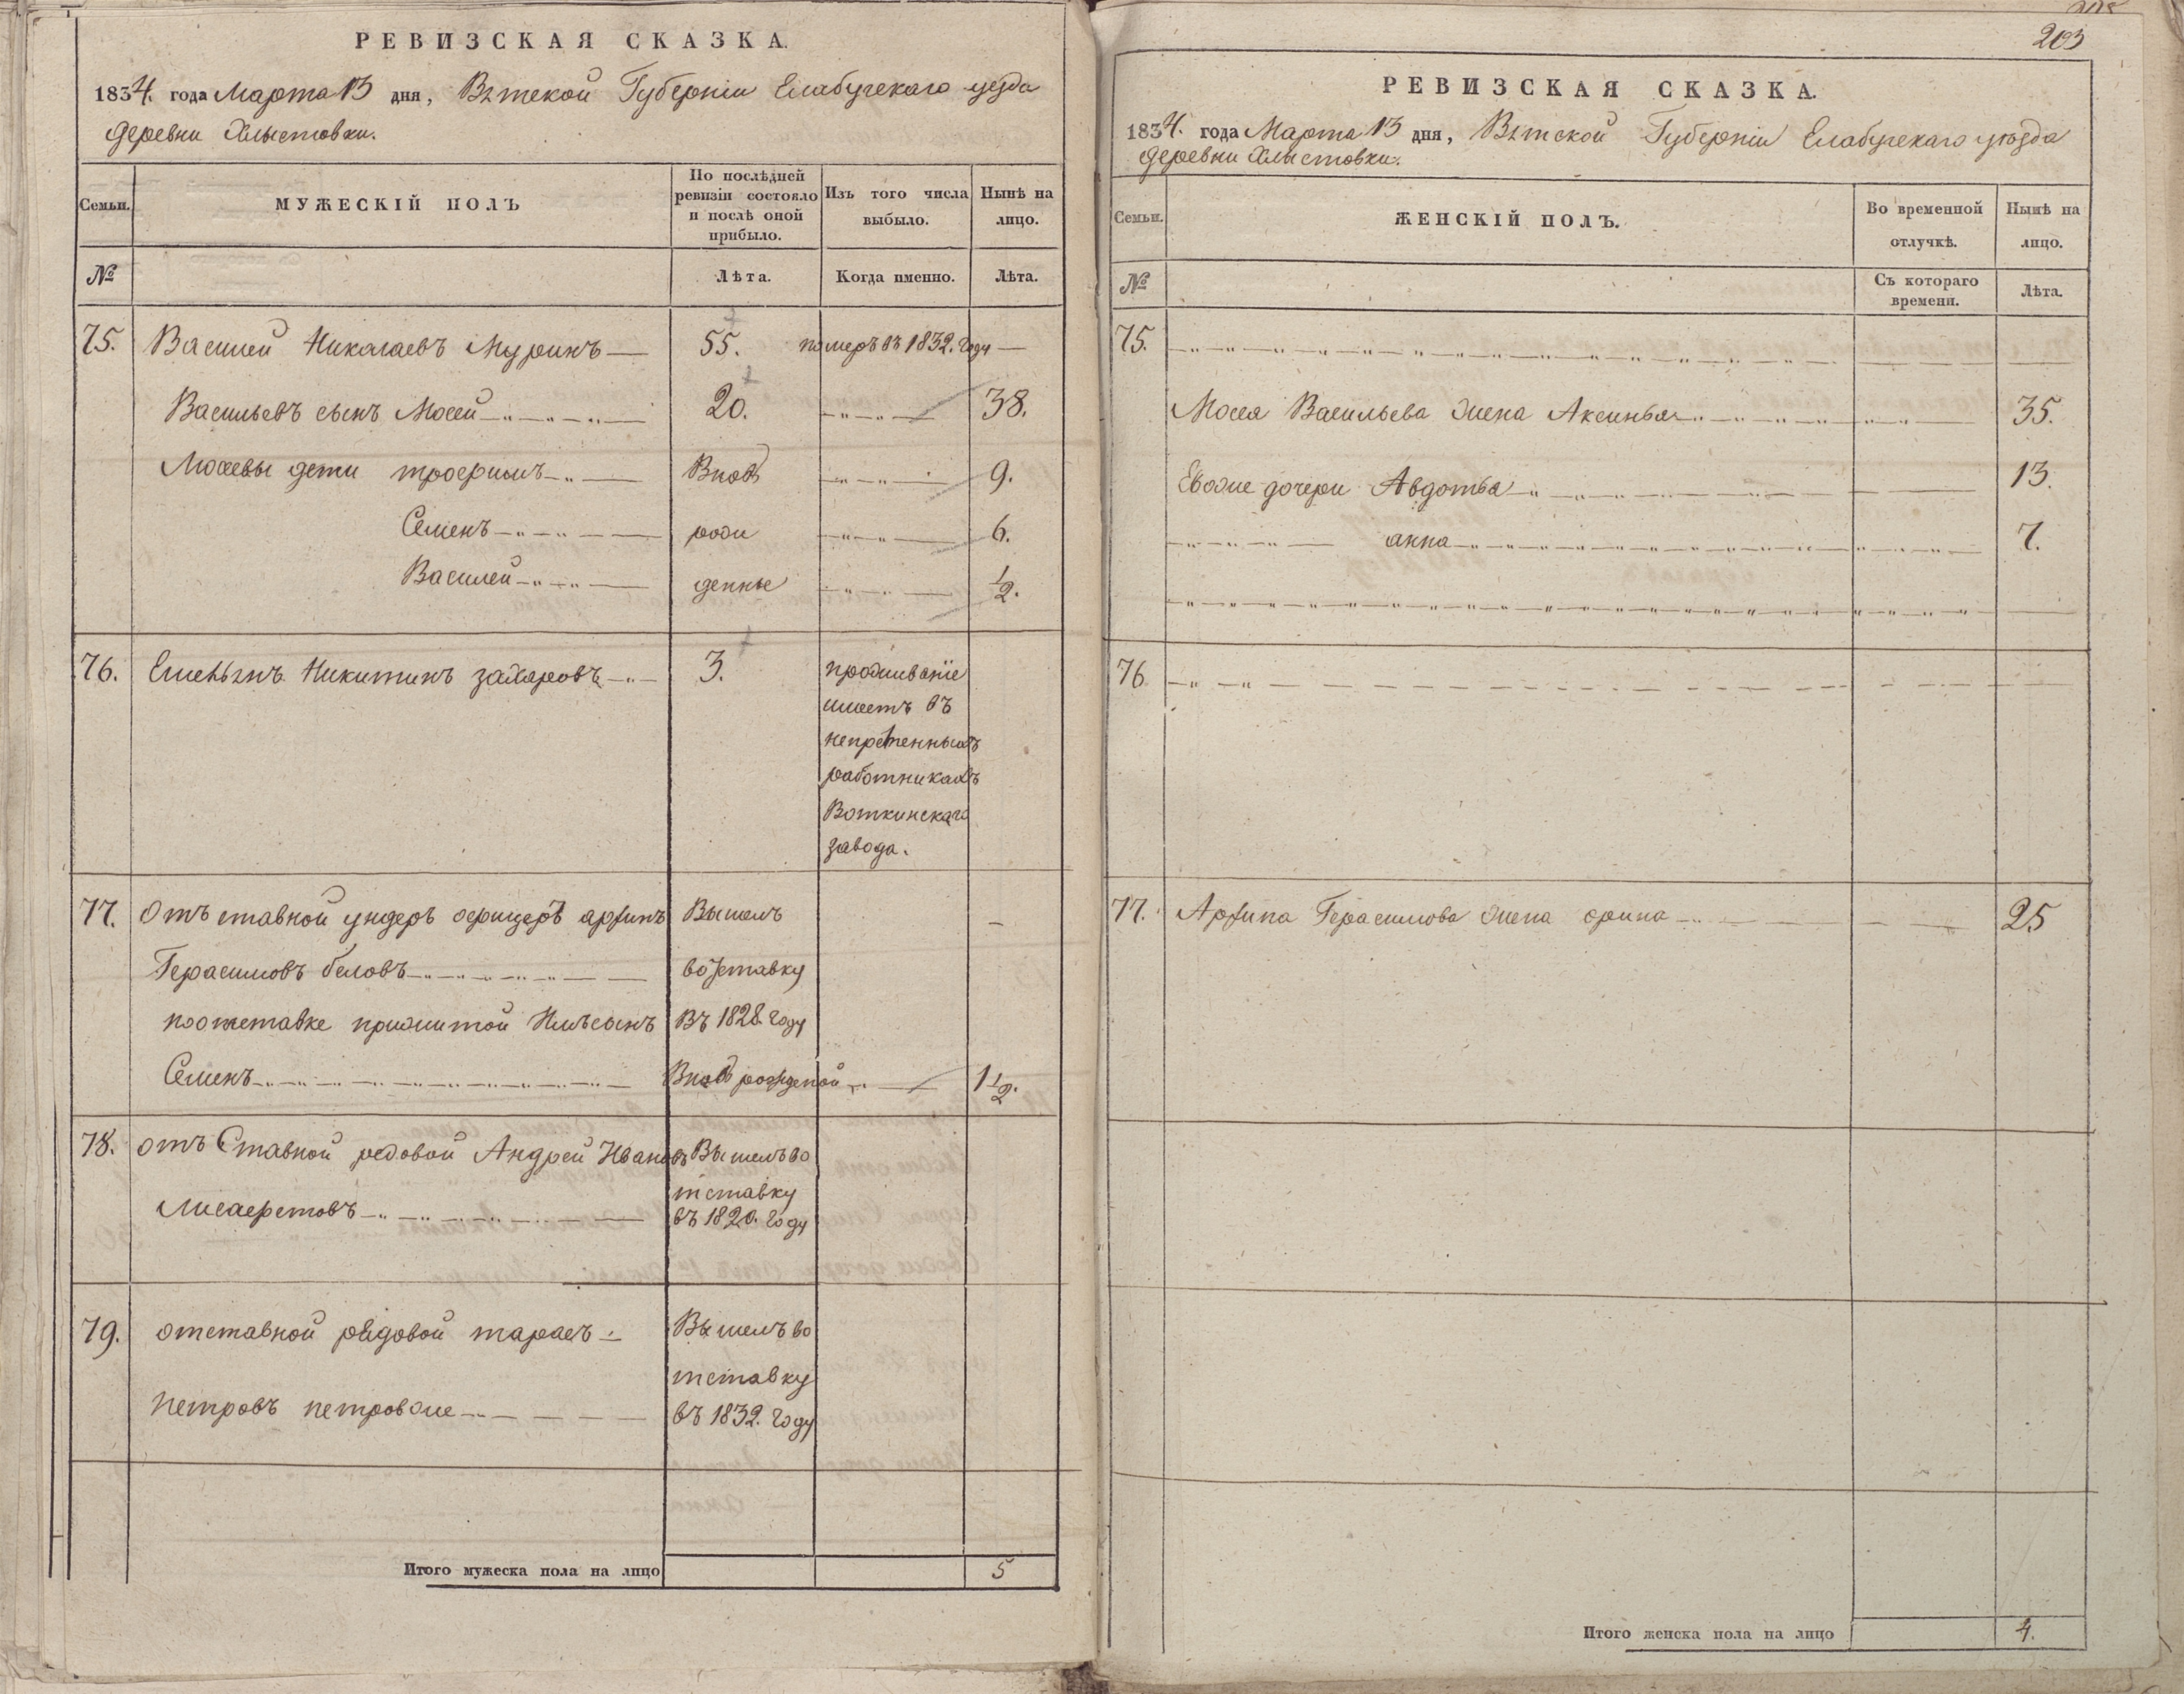 РЕВИЗСКАЯ СКАЗКА.
1834. года Марта 13 дня, Вятской Губерніи Елабугскаго уезда
деревни Хлыстовки.
Семьи.
МУЖЕСКІЙ ПОЛЪ
По послѣдней
ревизіи состояло
и послѣ оной
прибыло.
Изъ того числа
выбыло.
Нынѣ на
лицо.
№
Лѣта.
Когда именно.
Лѣта.
75. Василей Николаевъ Муринъ 55. померъ въ 1832. году
Васильевъ сынъ Мосей 20. 38.
Мосеевы дети трофимъ Вновь 9.
Семенъ рожи 6.
Василей денные 1/2.
76. Емельянъ Никитинъ захаровъ 3. проживаніе
имеетъ въ
непременныхъ
работникахъ
Воткинскаго
завода.
77. Отъставной ундеръ офицеръ архипъ Вышелъ
Герасимовъ беловъ вотставку
поотставке прижитой Имъ сынъ Въ 1828. году
Семенъ Вновь рожденой 1 1/2.
78. отъСтавной редовой Андрей Ивановъ Вышелъ во
тставку
въ 1820. году
79. отставной рядовой тарасъ Вышелъ во
тставку
Петровъ петровже въ 1832. году
Итого мужеска пола на лицо 5
203
РЕВИЗСКАЯ СКАЗКА.
1834. года Марта 13 дня, Вятской Губерніи Елабугскаго уѣзда
деревни Хлыстовки.
Семьи.
ЖЕНСКІЙ ПОЛЪ.
Во временной
отлучкѣ.
Нынѣ на
лицо.
№
Съ котораго
времени.
Лѣта.
75.
Мосея Васильева жена Аксинья 35.
Евоже дочери Авдотья 13.
анна 7.
76
77. Архипа Герасимова жена орина 25
Итого женска пола на лицо 4.